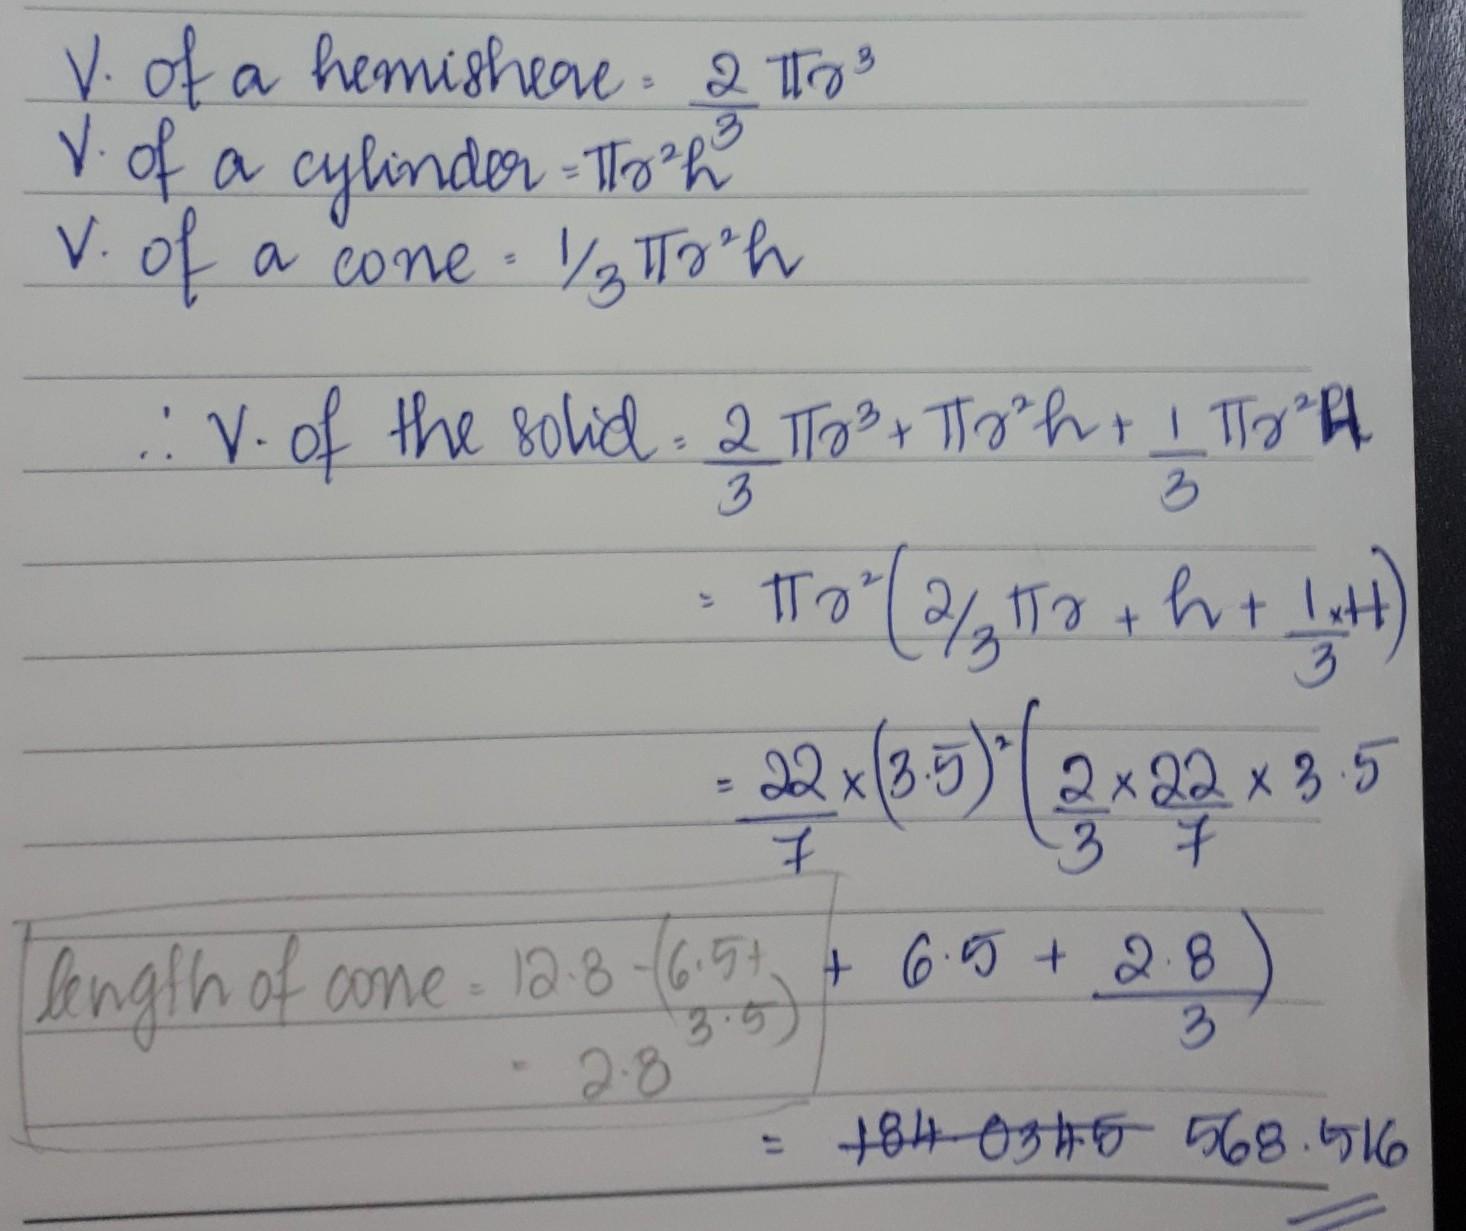 V. of a hemishere = 2/3 πr³
V. of a cylinder = πr²h
V. of a cone = 1/3 πr²h
∴ V. of the solid = 2/3 πr³ + πr²h + 1/3 πr²H
= πr² (2/3 πr + h + 1/3 × H)
= 22/7 × (3.5)² (2/3 × 22/7 × 3.5
length of cone = 12.8 - (6.5 + 3.5)
+ 6.5 + 2.8/3)
= 2.8
= 184.0345 568.516